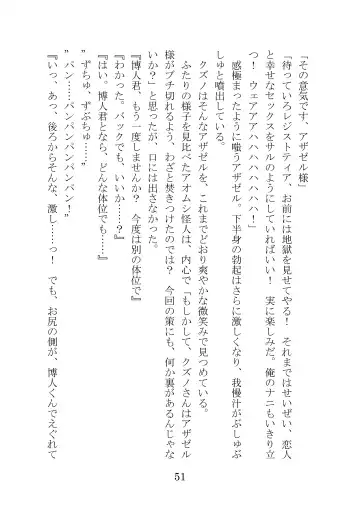 「その意気です、アザゼル様」
「待っていろレジスティア、お前には地獄を見せてやる！　それまではせいぜい、恋人
と幸せなセックスをサルのようにしていればいい！　実に楽しみだ。俺のナニもいきり立
つ！　ウェアアアハハハハハハハ！」
感極まったように嗤うアザゼル。下半身の勃起はさらに激しくなり、我慢汁がぶしゅぶ
しゅと噴出している。
クズノはそんなアザゼルを、これまでどおり爽やかな微笑みで見つめている。
ふたりの様子を見比べたアオムシ怪人は、内心で「もしかして、クズノさんはアザゼル
様がブチ切れるよう、わざと焚きつけたのでは？　今回の策にも、何か裏があるんじゃな
いか？」と思ったが、口には出さなかった。
『博人君、もう一度しませんか？　今度は別の体位で』
『わかった。バックでも、いいか……？』
『はい。博人君となら、どんな体位でも……』
”ずちゅ、ずぶちゅ……”
”パン……パンパンパンパンパン！”
『いっ、あっ、後ろからそんな、激し……っ！　でも、お尻の側が、博人くんでえぐれて
51